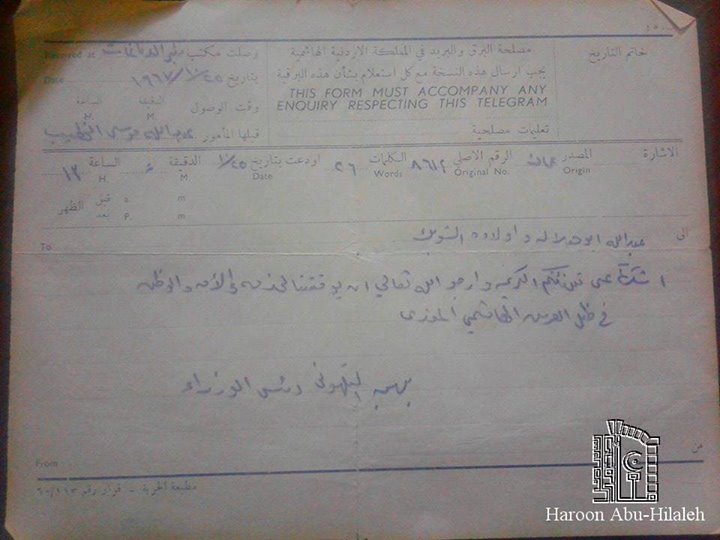 خاتم التاريخ
مصلحة البرق والبريد في المملكة الاردنية الهاشمية
يجب ارسال هذه النسخة مع كل استعلام بشأن هذه البرقية
THIS FORM MUST ACCOMPANY ANY
ENQUIRY RESPECTING THIS TELEGRAM
تعليمات مصلحية
وصلت مكتب
Received at
بتاريخ ١٩٦٧/١/٢٥
Date
الساعة الدقيقة
وقت الوصول M H
قبلها المأمور عبدالله موسى الخطيب
الاشارة
المصدر عمان الرقم الاصلي ٨٦١٢ الكلمات ٢٦ اودعت بتاريخ ١/٢٥ الدقيقة الساعة ١٢
Origin Original No. Words Date M H
قبل a m
الظهر
بعد p m
الى عبدالله ابو هلاله و اولاده الشوبك
To
اشكركم على تهنئتكم الكريمه و ارجو الله تعالى ان يوفقنا لخدمه والأمه والوطن
في ظل العرش الهاشمي المفدى
بهجه التلهوني رئيس الوزراء
من
From
مطبعة الحرية - قرار رقم ٦٠/١١٣
Haroon Abu-Hilaleh